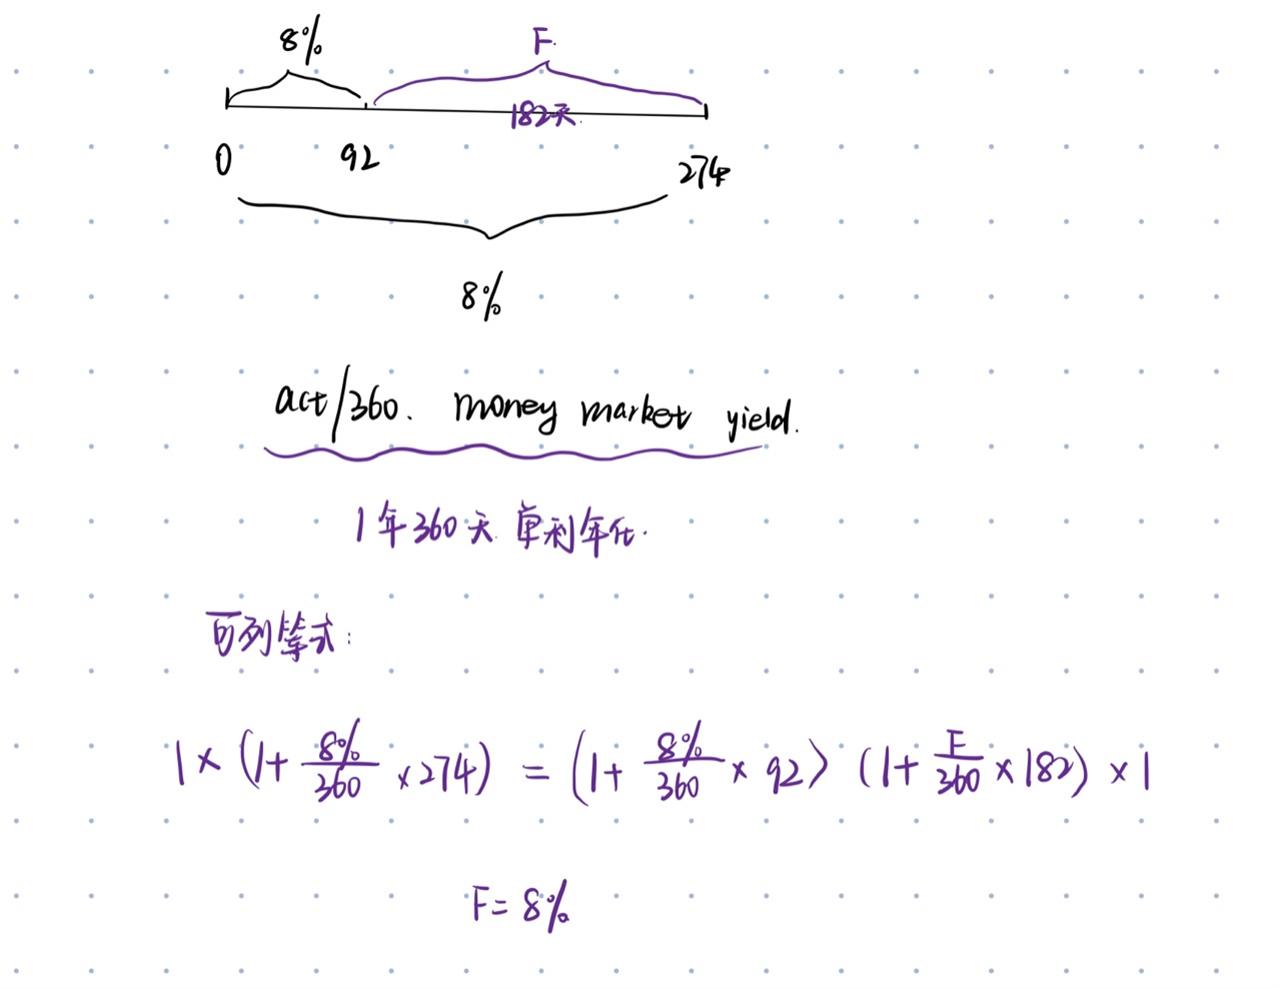 8%
F.
182天.
0
92
274
8%
act/360. money market yield.
1年360天 单利年化.
可列等式:
1 × (1 + 8%/360 × 274) = (1 + 8%/360 × 92) (1 + F/360 × 182) × 1
F = 8%